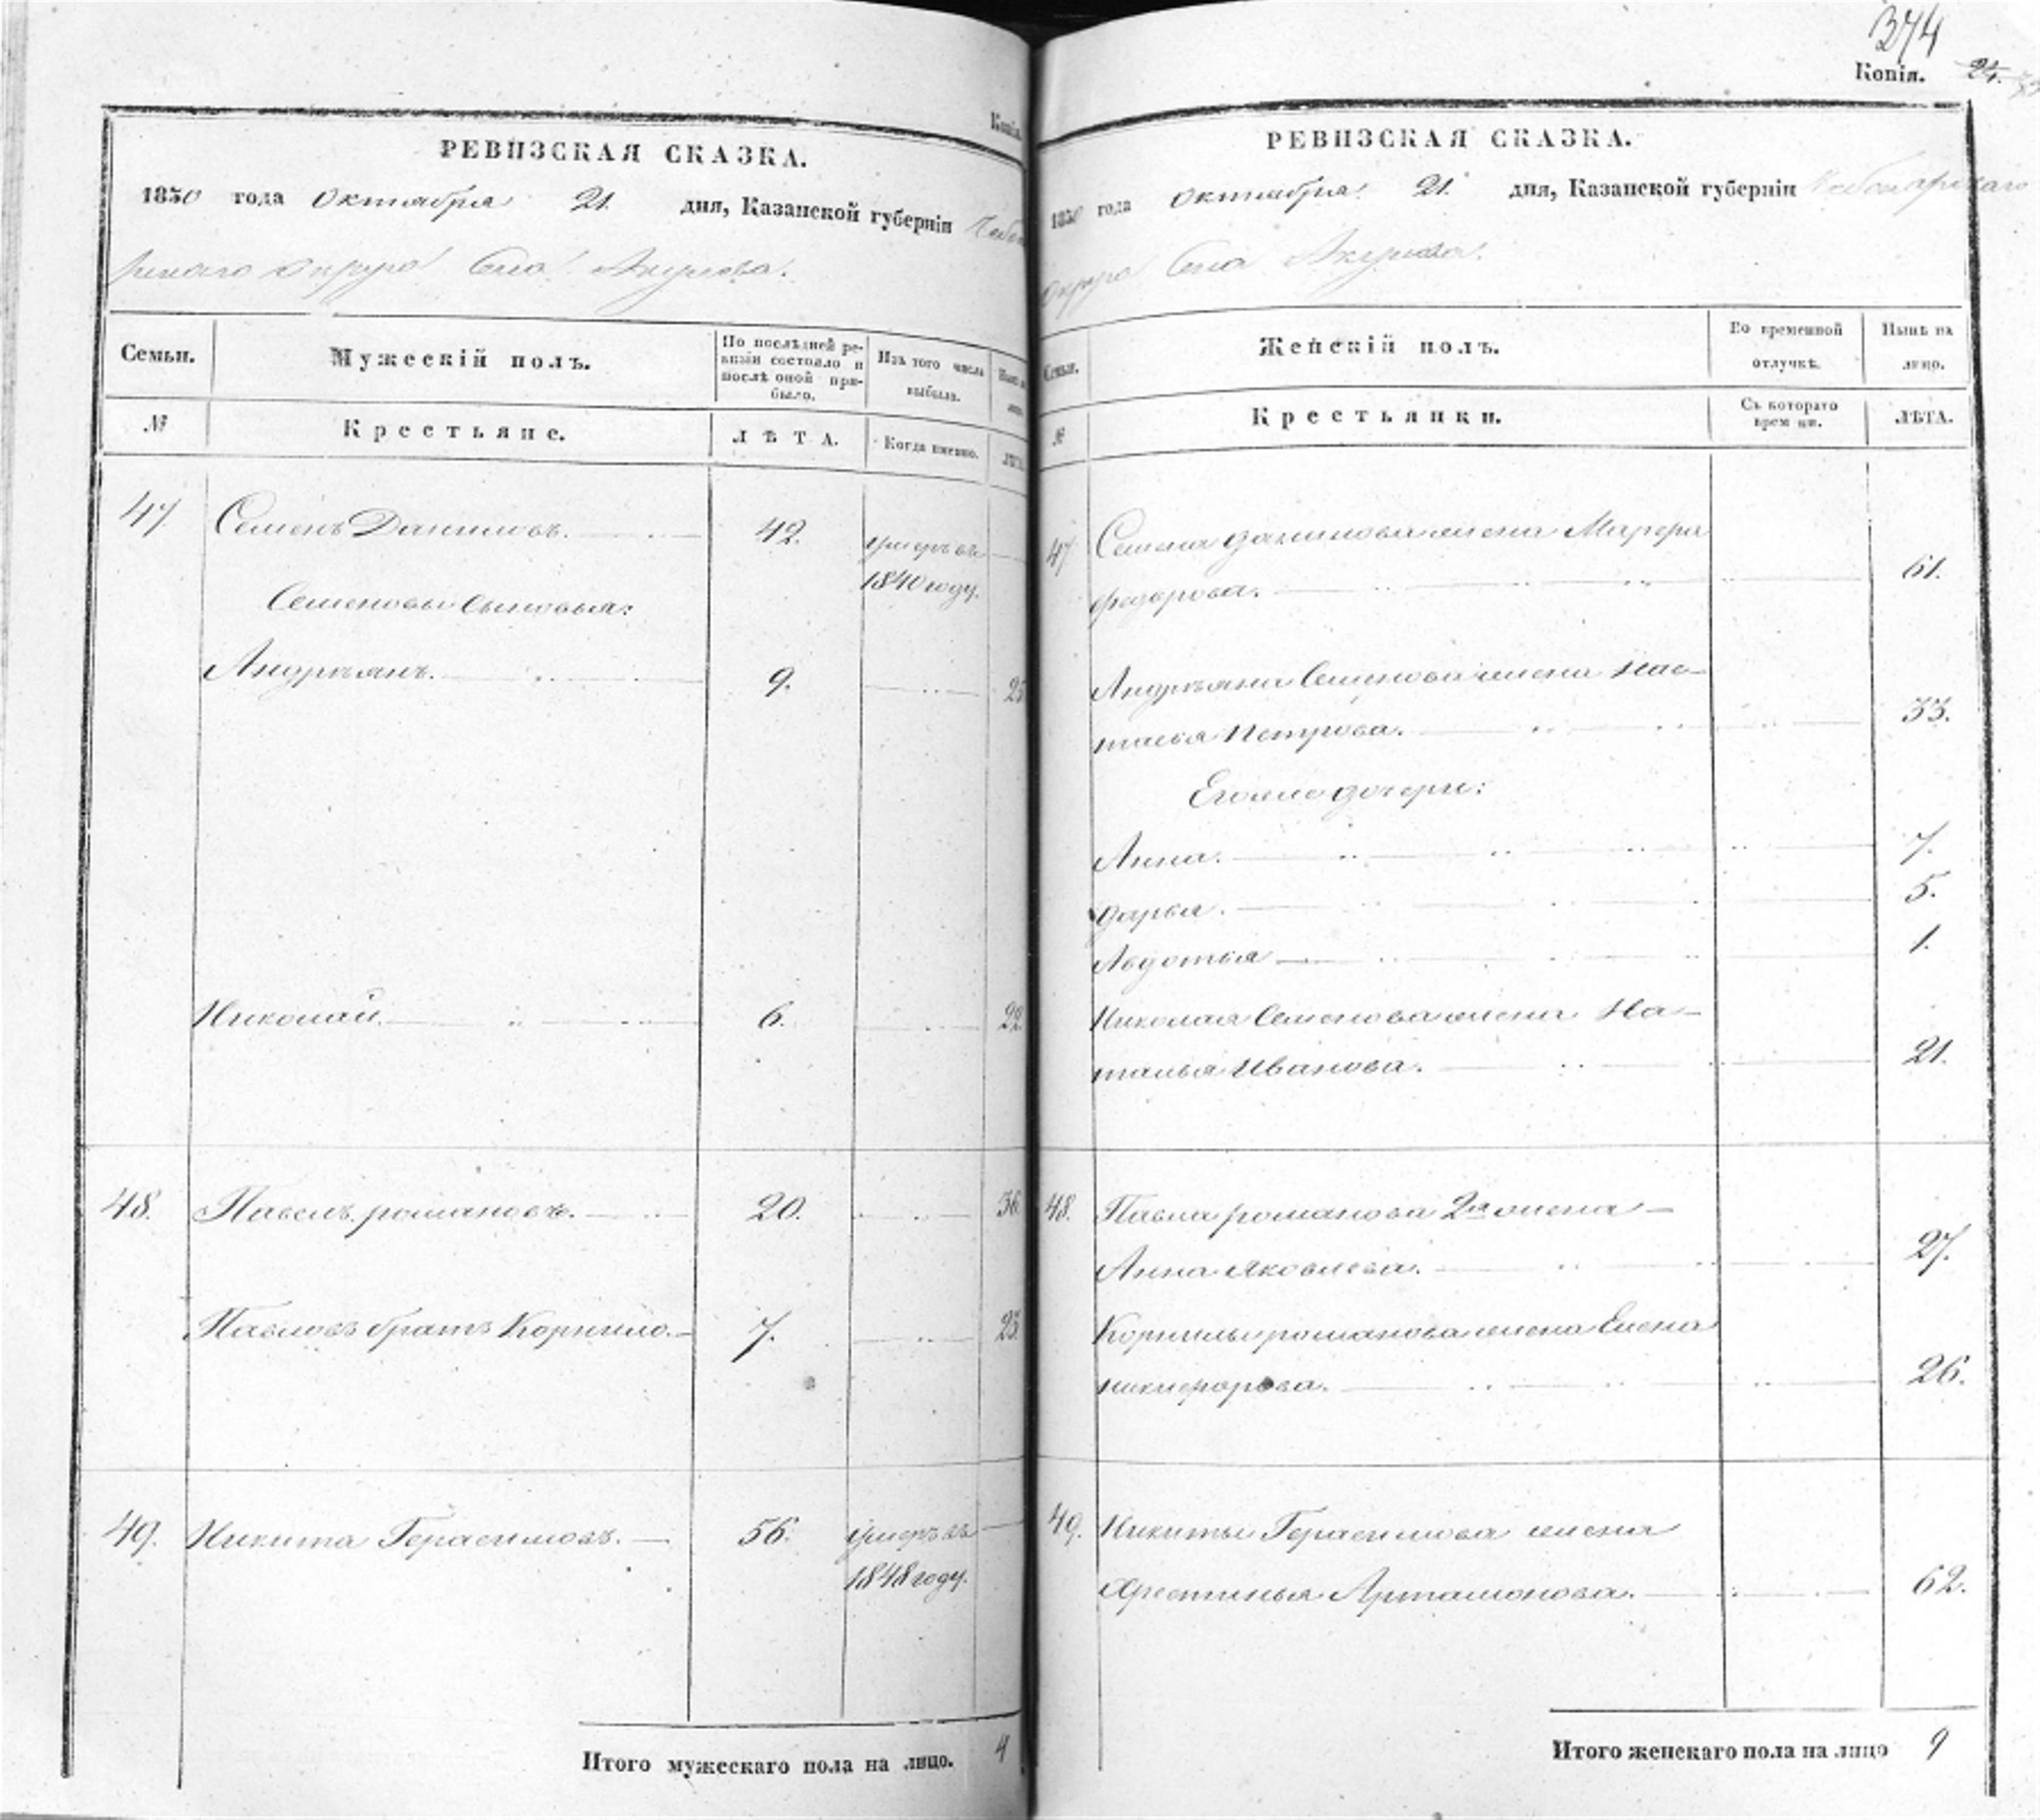 374
Копія. 24.
Копія.
РЕВИЗСКАЯ СКАЗКА.
1850 года Октября 21. дня, Казанской губерніи Чебок
рскаго округа Села Акулева.
Семьи.
Мужескій полъ.
По послѣдней ре-
визіи состояло и
послѣ оной при-
было.
Изъ того числа
выбыло.
№
Крестьяне.
ЛѢТА.
Когда именно.
47 Семенъ Даниловъ. 42. умеръ въ
1840 году.
Семеновы сыновья:
Андреянъ. 9. 25
Николай. 6. 22
48. Павелъ романовъ. 20. 36
Павловъ братъ Корнило. 7. 23
49. Никита Герасимовъ. 56. умеръ въ
1848 году.
Итого мужескаго пола на лицо. 4
РЕВИЗСКАЯ СКАЗКА.
1850 года Октября 21. дня, Казанской губерніи Чебоксарскаго
округа Села Акулева.
Семьи.
Женскій полъ.
Во временной
отлучкѣ.
Нынѣ на
лицо.
№
Крестьянки.
Съ котораго
времени.
ЛѢТА.
47 Семена данилова жена
федорова. 61.
Андреяна Семенова жена Нас-
тасья Петрова. 33.
Его же дочери:
Анна. 7.
дарья. 5.
Авдотья 1.
Николая Семенова жена На-
талья Иванова. 21.
48. Павла романова 2я жена
Анна яковлева. 27.
Корнилы романова жена Елена
никифорова. 26.
49. Никиты Герасимова жена
Хрестинья Артамонова. 62.
Итого женскаго пола на лицо 9